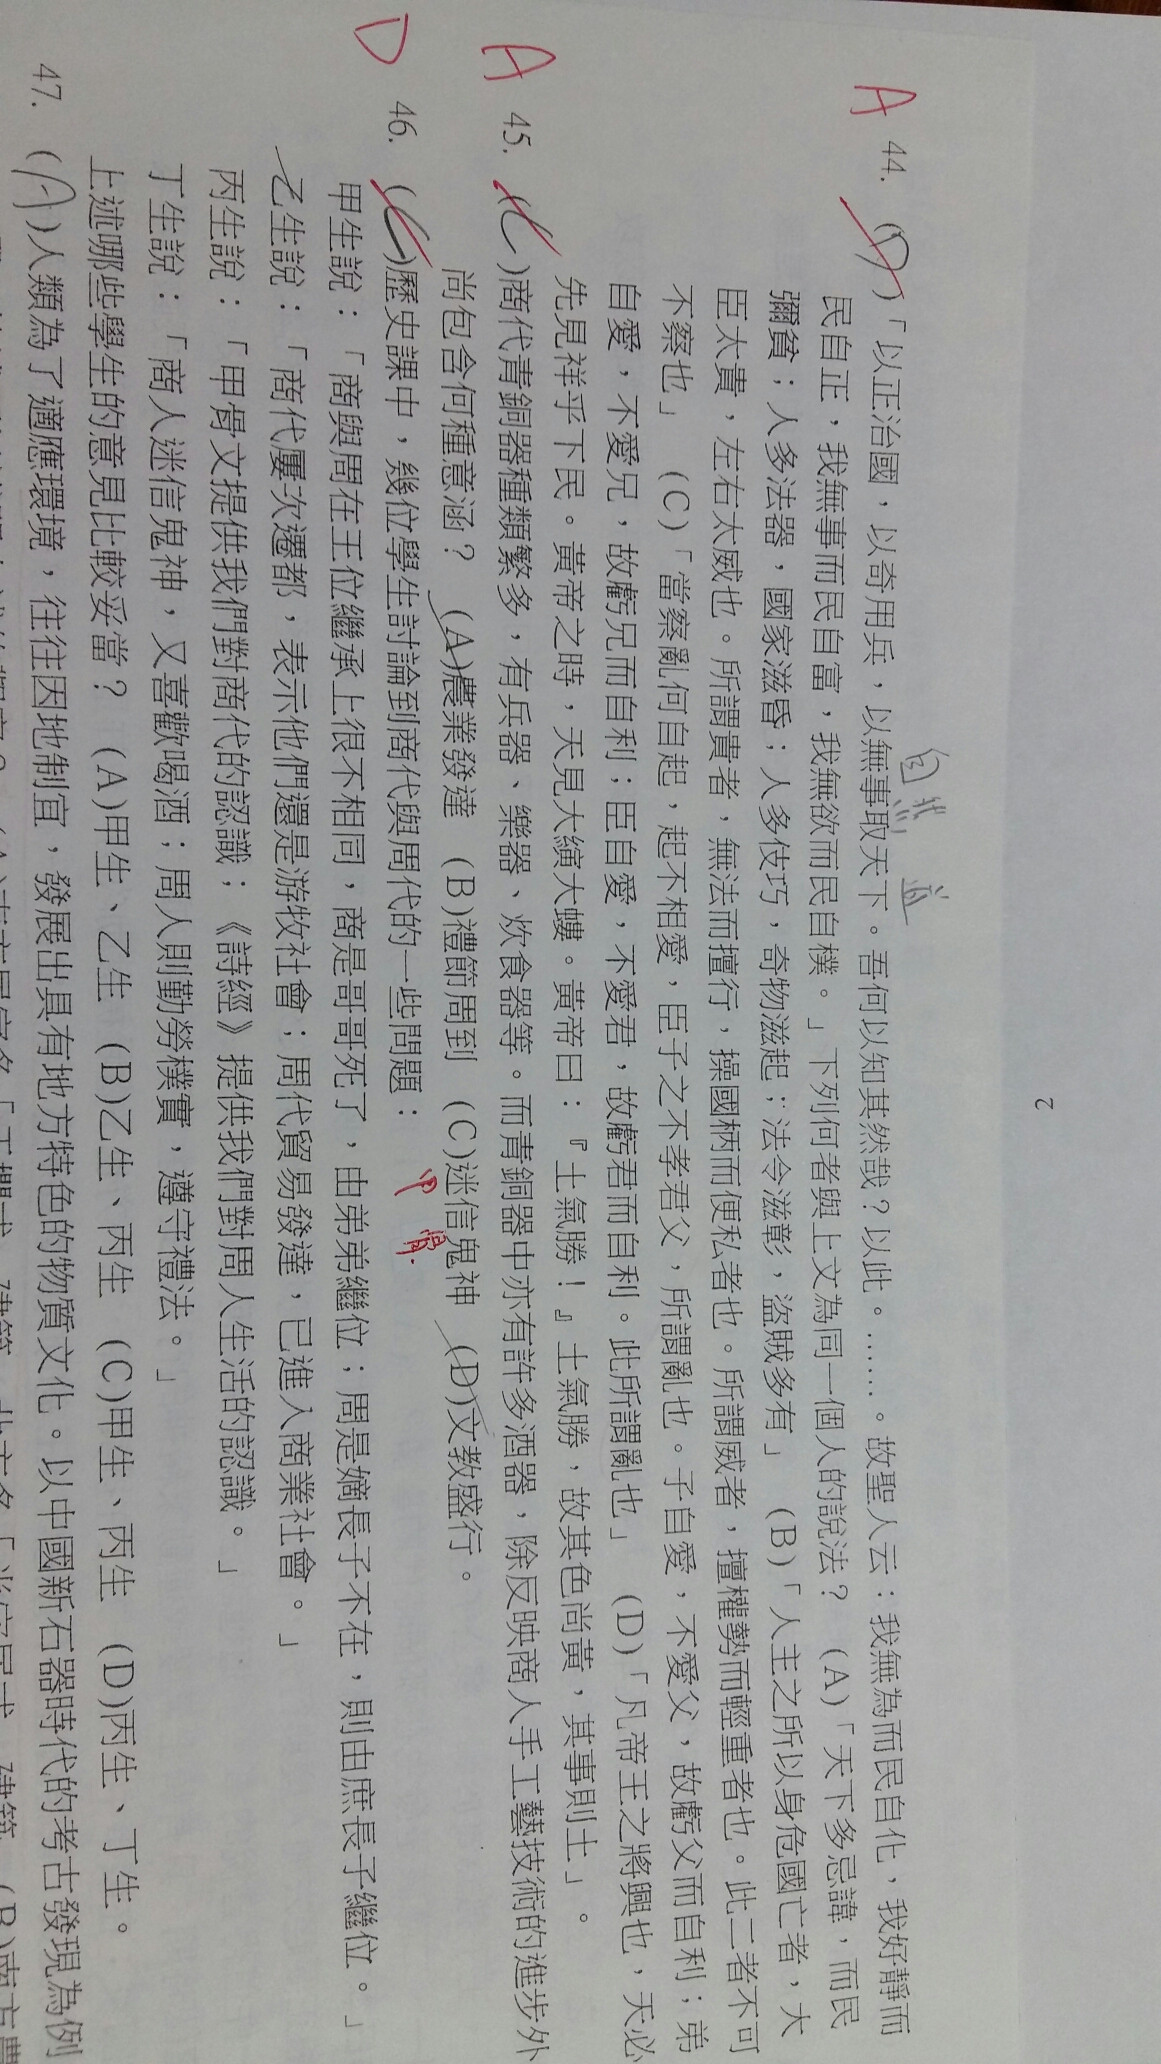 2
自然
A 44. ( )「以正治國，以奇用兵，以無事取天下。吾何以知其然哉？以此。……。故聖人云：我無為而民自化，我好靜而
民自正，我無事而民自富，我無欲而民自樸。」下列何者與上文為同一個人的說法？ (A)「天下多忌諱，而民
彌貧；人多法器，國家滋昏；人多伎巧，奇物滋起；法令滋彰，盜賊多有」 (B)「人主之所以身危國亡者，大
臣太貴，左右太威也。所謂貴者，無法而擅行，操國柄而便私者也。所謂威者，擅權勢而輕重者也。此二者不可
不察也」 (C)「當察亂何自起，起不相愛，臣子之不孝君父，所謂亂也。子自愛，不愛父，故虧父而自利；弟
自愛，不愛兄，故虧兄而自利；臣自愛，不愛君，故虧君而自利。此所謂亂也」 (D)「凡帝王之將興也，天必
先見祥乎下民。黃帝之時，天見大螾大螻。黃帝曰：『土氣勝！』土氣勝，故其色尚黃，其事則土」。
A 45. ( )商代青銅器種類繁多，有兵器、樂器、炊食器等。而青銅器中亦有許多酒器，除反映商人手工藝技術的進步外
尚包含何種意涵？ (A)農業發達 (B)禮節周到 (C)迷信鬼神 (D)文教盛行。
D 46. ( )歷史課中，幾位學生討論到商代與周代的一些問題： 甲
甲生說：「商與周在王位繼承上很不相同，商是哥哥死了，由弟弟繼位；周是嫡長子不在，則由庶長子繼位。」
乙生說：「商代屢次遷都，表示他們還是游牧社會；周代貿易發達，已進入商業社會。」
丙生說：「甲骨文提供我們對商代的認識；《詩經》提供我們對周人生活的認識。」
丁生說：「商人迷信鬼神，又喜歡喝酒；周人則勤勞樸實，遵守禮法。」
上述哪些學生的意見比較妥當？ (A)甲生、乙生 (B)乙生、丙生 (C)甲生、丙生 (D)丙生、丁生。
47. (A)人類為了適應環境，往往因地制宜，發展出具有地方特色的物質文化。以中國新石器時代的考古發現為例